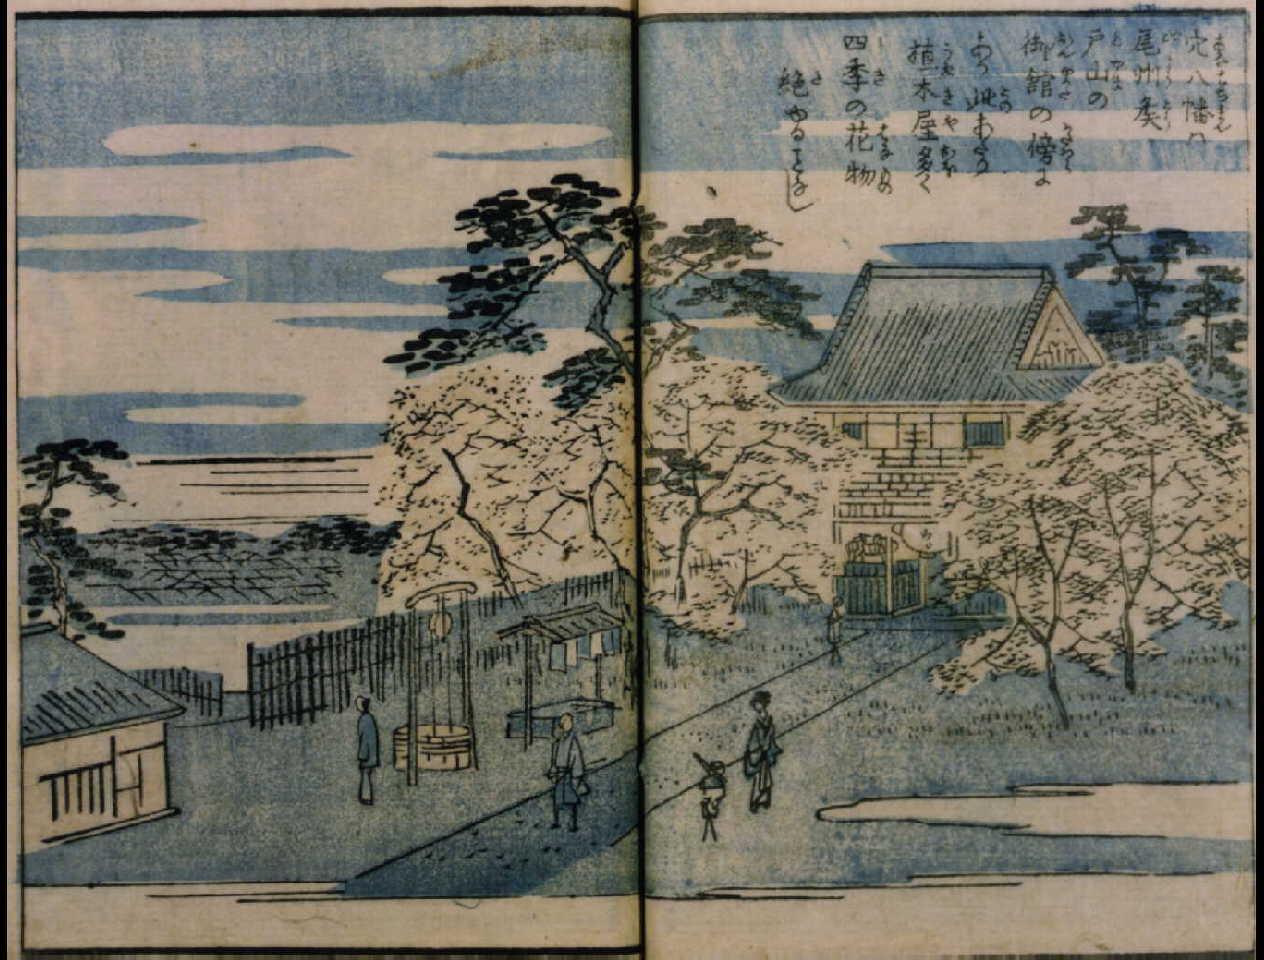 穴八幡ハ
尾州矦
戸山の
御舘の傍に
あり此あたり
植木屋多く
四季の花物
絶やることなし